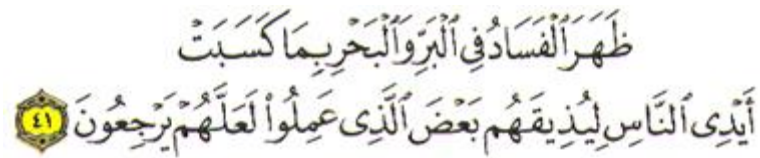 ظَهَرَ ٱلْفَسَادُ فِي ٱلْبَرِّ وَٱلْبَحْرِ بِمَا كَسَبَتْ
أَيْدِى ٱلنَّاسِ لِيُذِيقَهُم بَعْضَ ٱلَّذِى عَمِلُوا۟ لَعَلَّهُمْ يَرْجِعُونَ ٤١